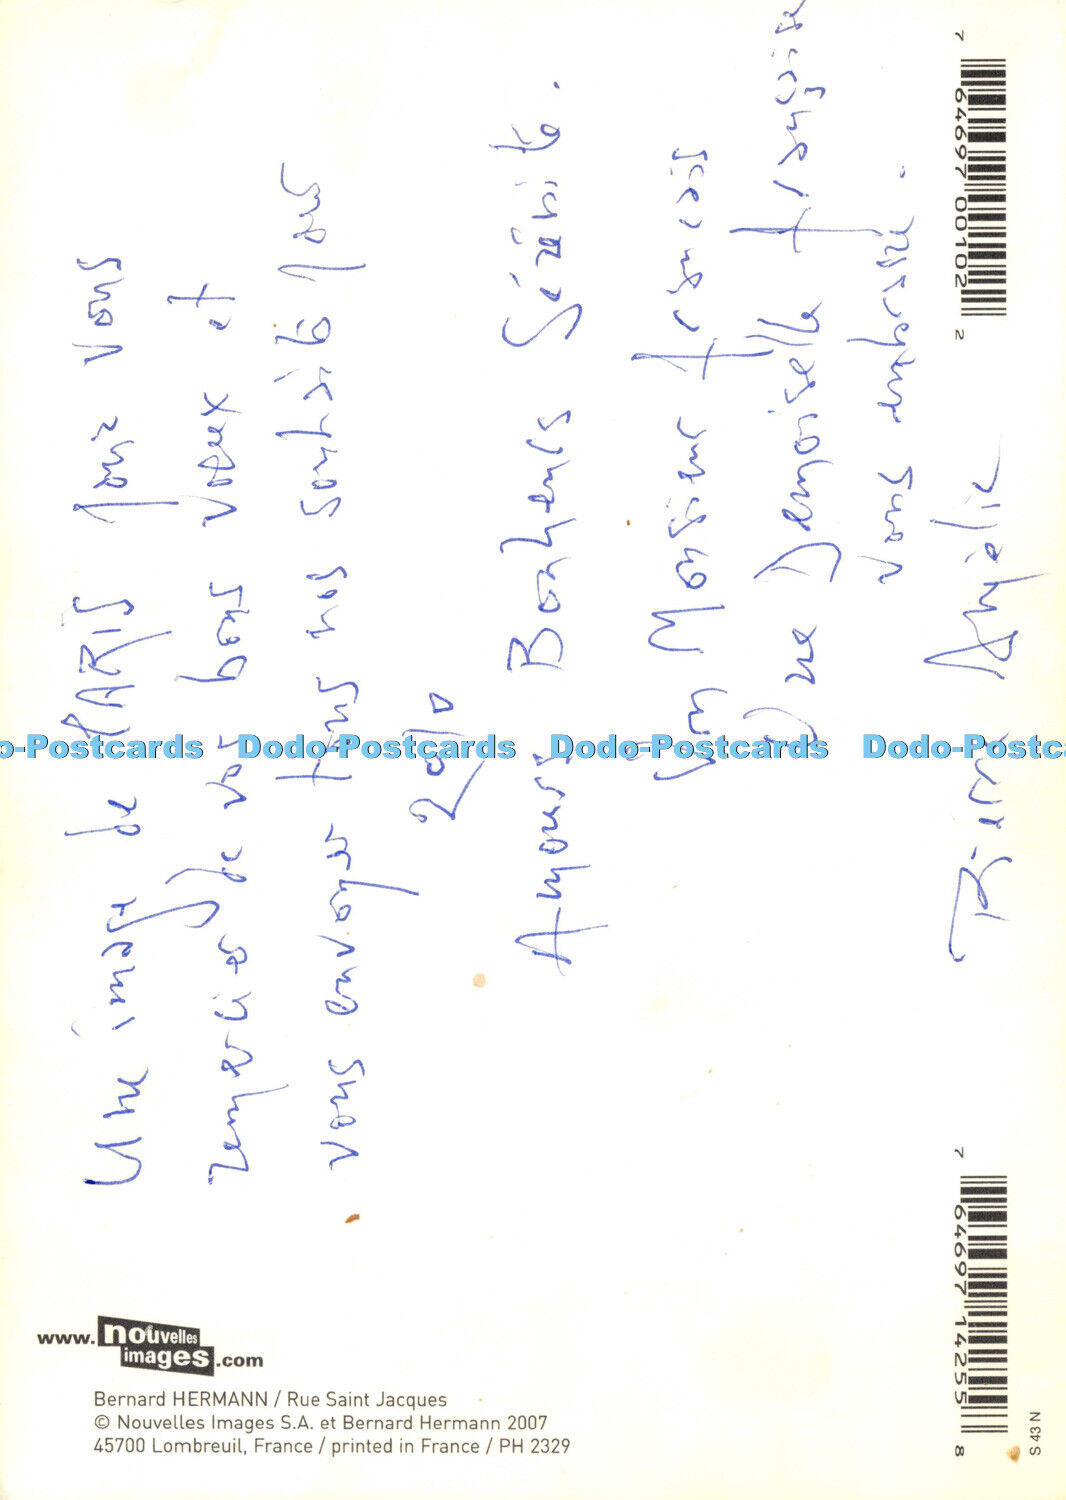 Une image de PARIS pour vous
remercier de vos bons voeux et
vous envoyer tous nos souhaits pour
2010
Amours Bonheurs Sérénité.
Un Monsieur français
Une Demoiselle française
vous
Pierre
7 64697 00102 2
7 64697 14255 8
S 43 N
www.nouvelles images.com
Bernard HERMANN / Rue Saint Jacques
© Nouvelles Images S.A. et Bernard Hermann 2007
45700 Lombreuil, France / printed in France / PH 2329
Dodo-Postcards Dodo-Postcards Dodo-Postcards Dodo-Postcards